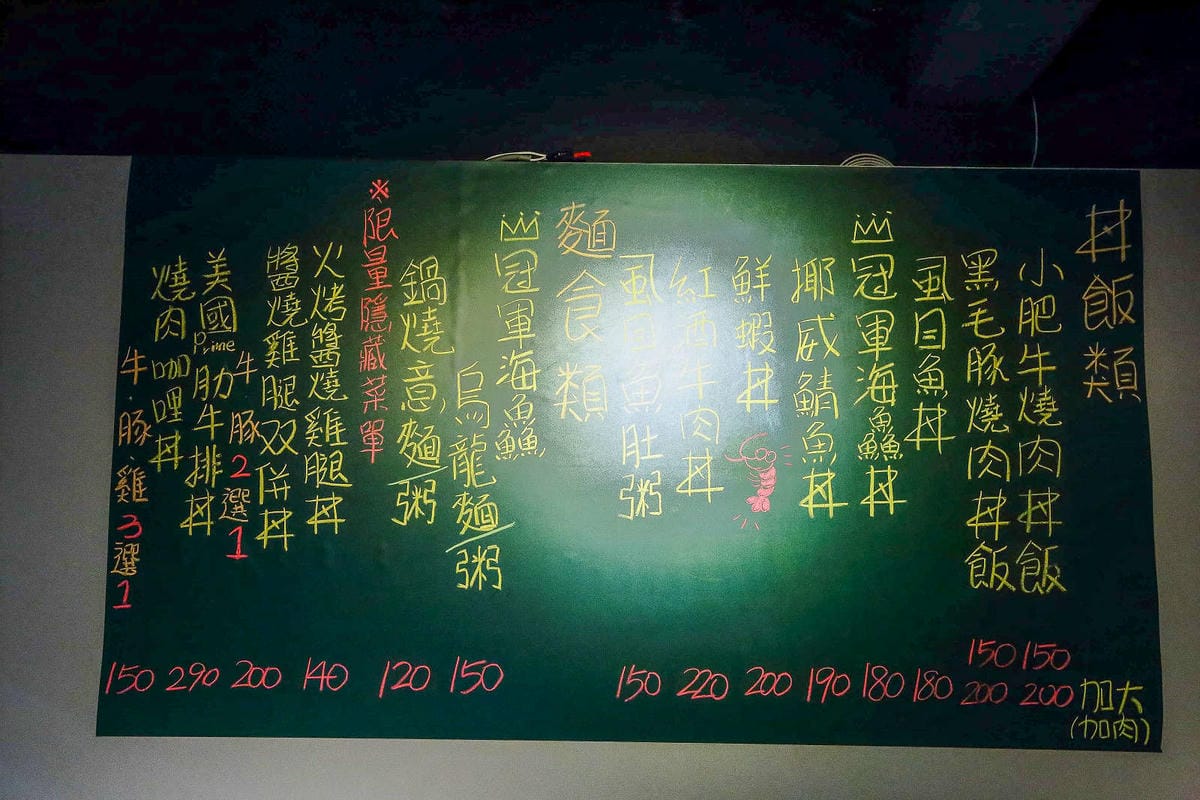 丼飯類
小肥牛燒肉丼飯
150
200
加大
(加肉)
黑毛豚燒肉丼飯
150
200
虱目魚丼
180
冠軍海鱻丼
180
椰威鯖魚丼
190
鮮蝦丼
200
紅酒牛肉丼
220
虱目魚肚粥
150
麵食類
冠軍海鱻
烏龍麵/粥
150
鍋燒意麵/粥
120
※限量隱藏菜單
火烤醬燒雞腿丼
140
醬燒雞腿双併丼
牛豚2選1
200
美國prime肋牛排丼
290
燒肉咖哩丼
牛.豚.雞3選1
150